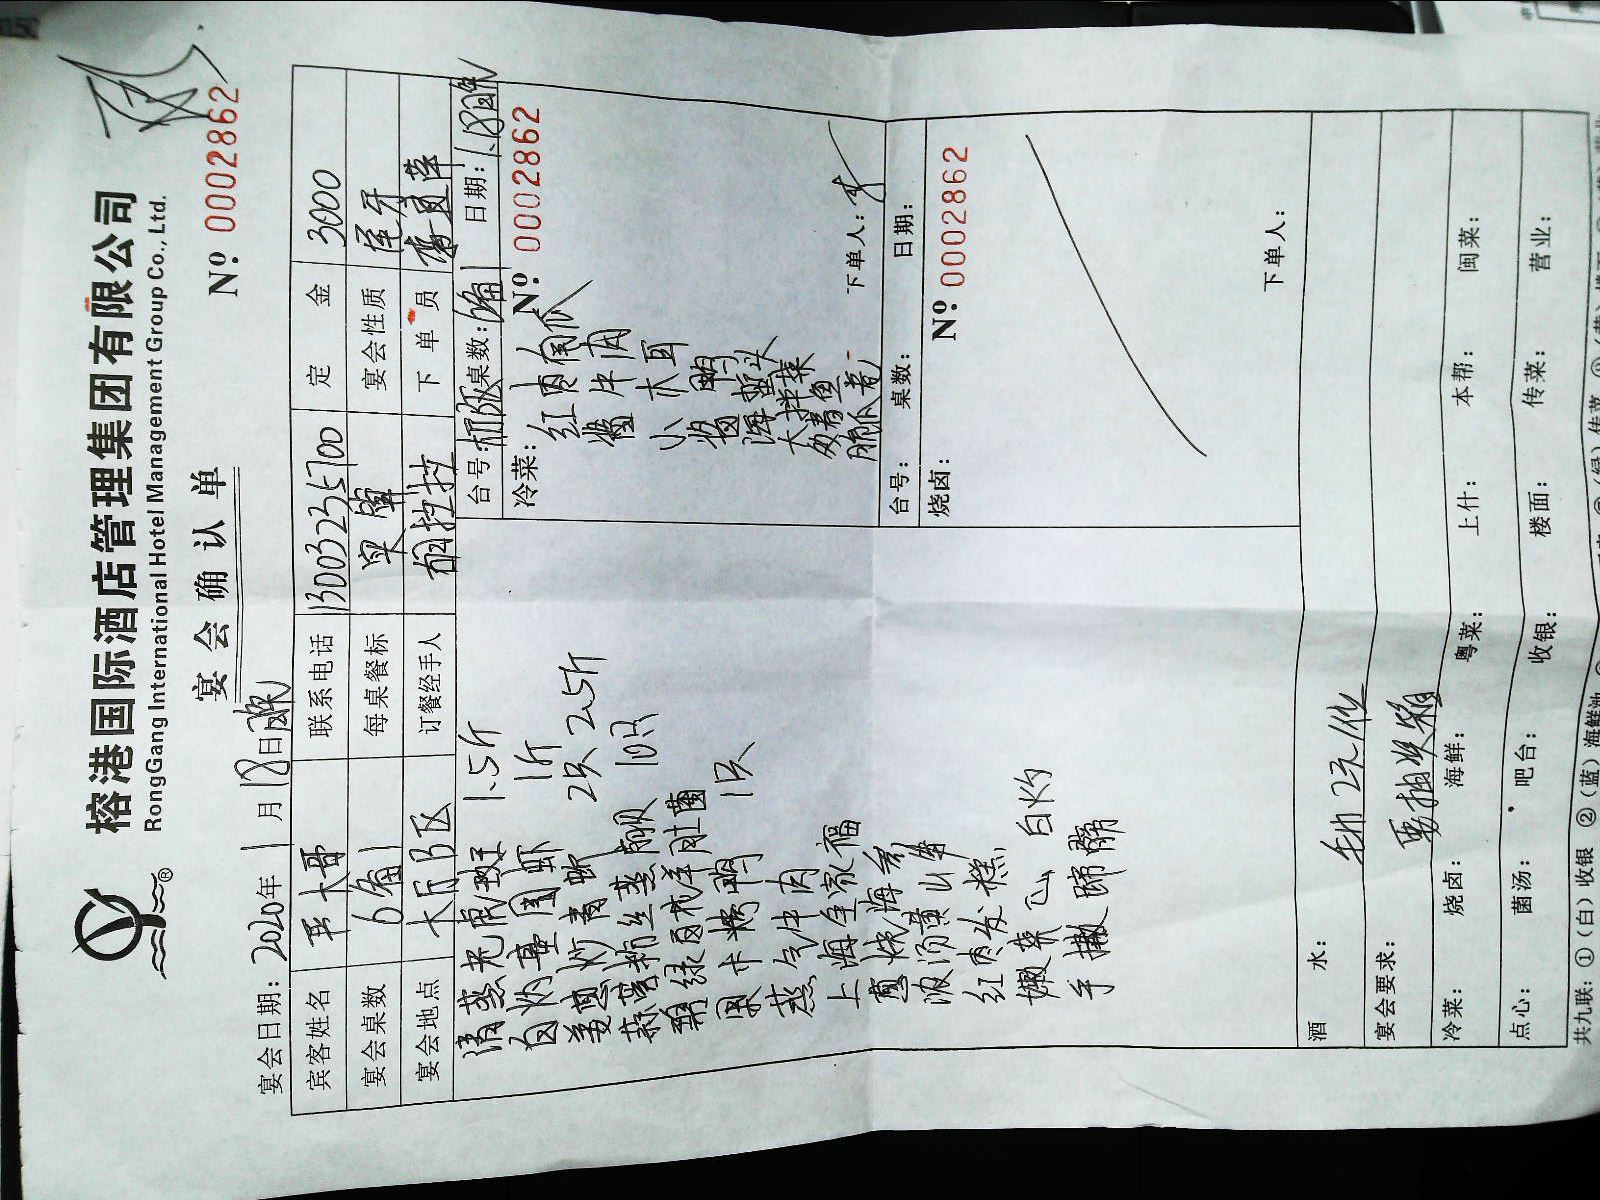 榕港国际酒店管理集团有限公司
RongGang International Hotel Management Group Co., Ltd.
宴会确认单
Nº 0002862
宴会日期：2020年1月18日晚
宾客姓名 大哥 联系电话 13003235700 定金 3000
宴会桌数 6 每桌餐标 宴会性质 尾牙
宴会地点 大厅B区 订餐经手人 下单员
清蒸老虎斑 1.5斤
白灼基围虾 1斤
姜葱炒青蟹 2只 2.5斤
蒜蓉粉丝蒸扇贝 10只
羊肚菌
1只
蒸气牛肉
上海全家福
葱烧海参
浓汤黄山笋
红枣发糕
嫩菜心 白灼
手撕蹄髈
台号： 桌数： 日期：1.18晚
冷菜：
Nº 0002862
红枣南瓜
酱牛肉
小木耳
酱鸭
海蜇头
大拌菜
脆瓜
下单人：
台号： 桌数： 日期：
烧卤：
Nº 0002862
下单人：
酒水：自带 2元/位
宴会要求：
冷菜： 烧卤： 海鲜： 粤菜： 上什： 本帮： 闽菜：
点心： 菌汤： 吧台： 收银： 楼面： 传菜： 营业：
共九联：①（白）收银 ②（蓝）海鲜池